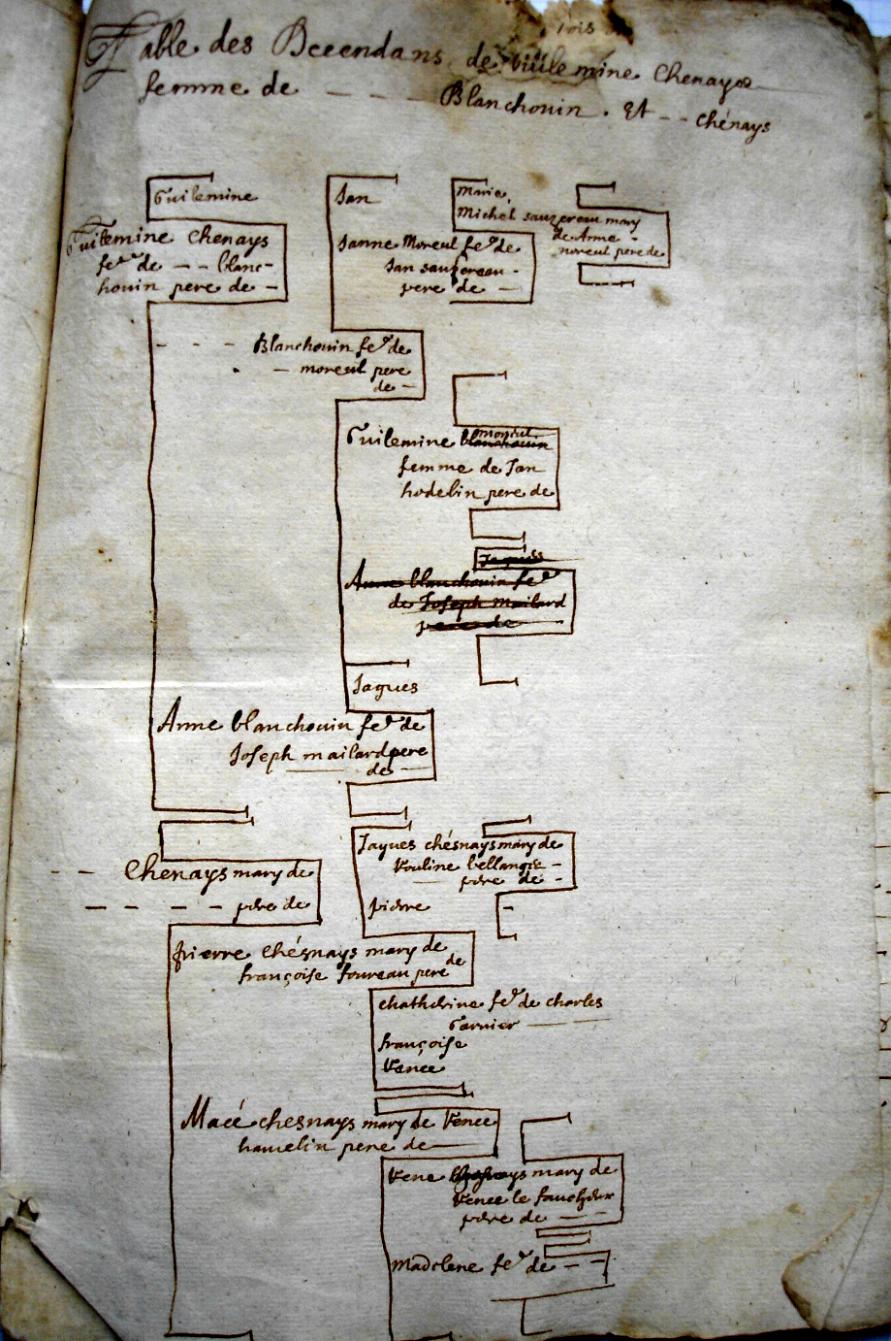 Table des Decendans de Guilemine Chenays
femme de - - - Blanchouin . Et - - chénays
Guilemine
Guilemine Chenays
fe. de - - blanc-
houin pere de -
Jan
Janne Moreul fe. de
Jan sauzereau -
pere de -
Marie
Michel sauzereau mary
de Anne -
moreul pere de
- - - Blanchouin fe. de
- moreul pere
de -
Guilemine blanchouin moreul
femme de Jan
hodebin pere de
Jaques
Anne blanchouin fe.
de Joseph mailard
pere de
Jaques
Anne blanchouin fe. de
Joseph mailard pere
de -
- - Chenays mary de
- - - - - pere de
Jaques chésnays mary de
bellange -
pere de -
pierre
pierre Chésnays mary de
françoise foureau pere de
chatherine fe. de charles
Garnier
françoise
Renee
Macé chesnays mary de Renee
hamelin pere de
Rene chesnays mary de
Renee le faucheux
pere de - -
Madelene fe. de - -